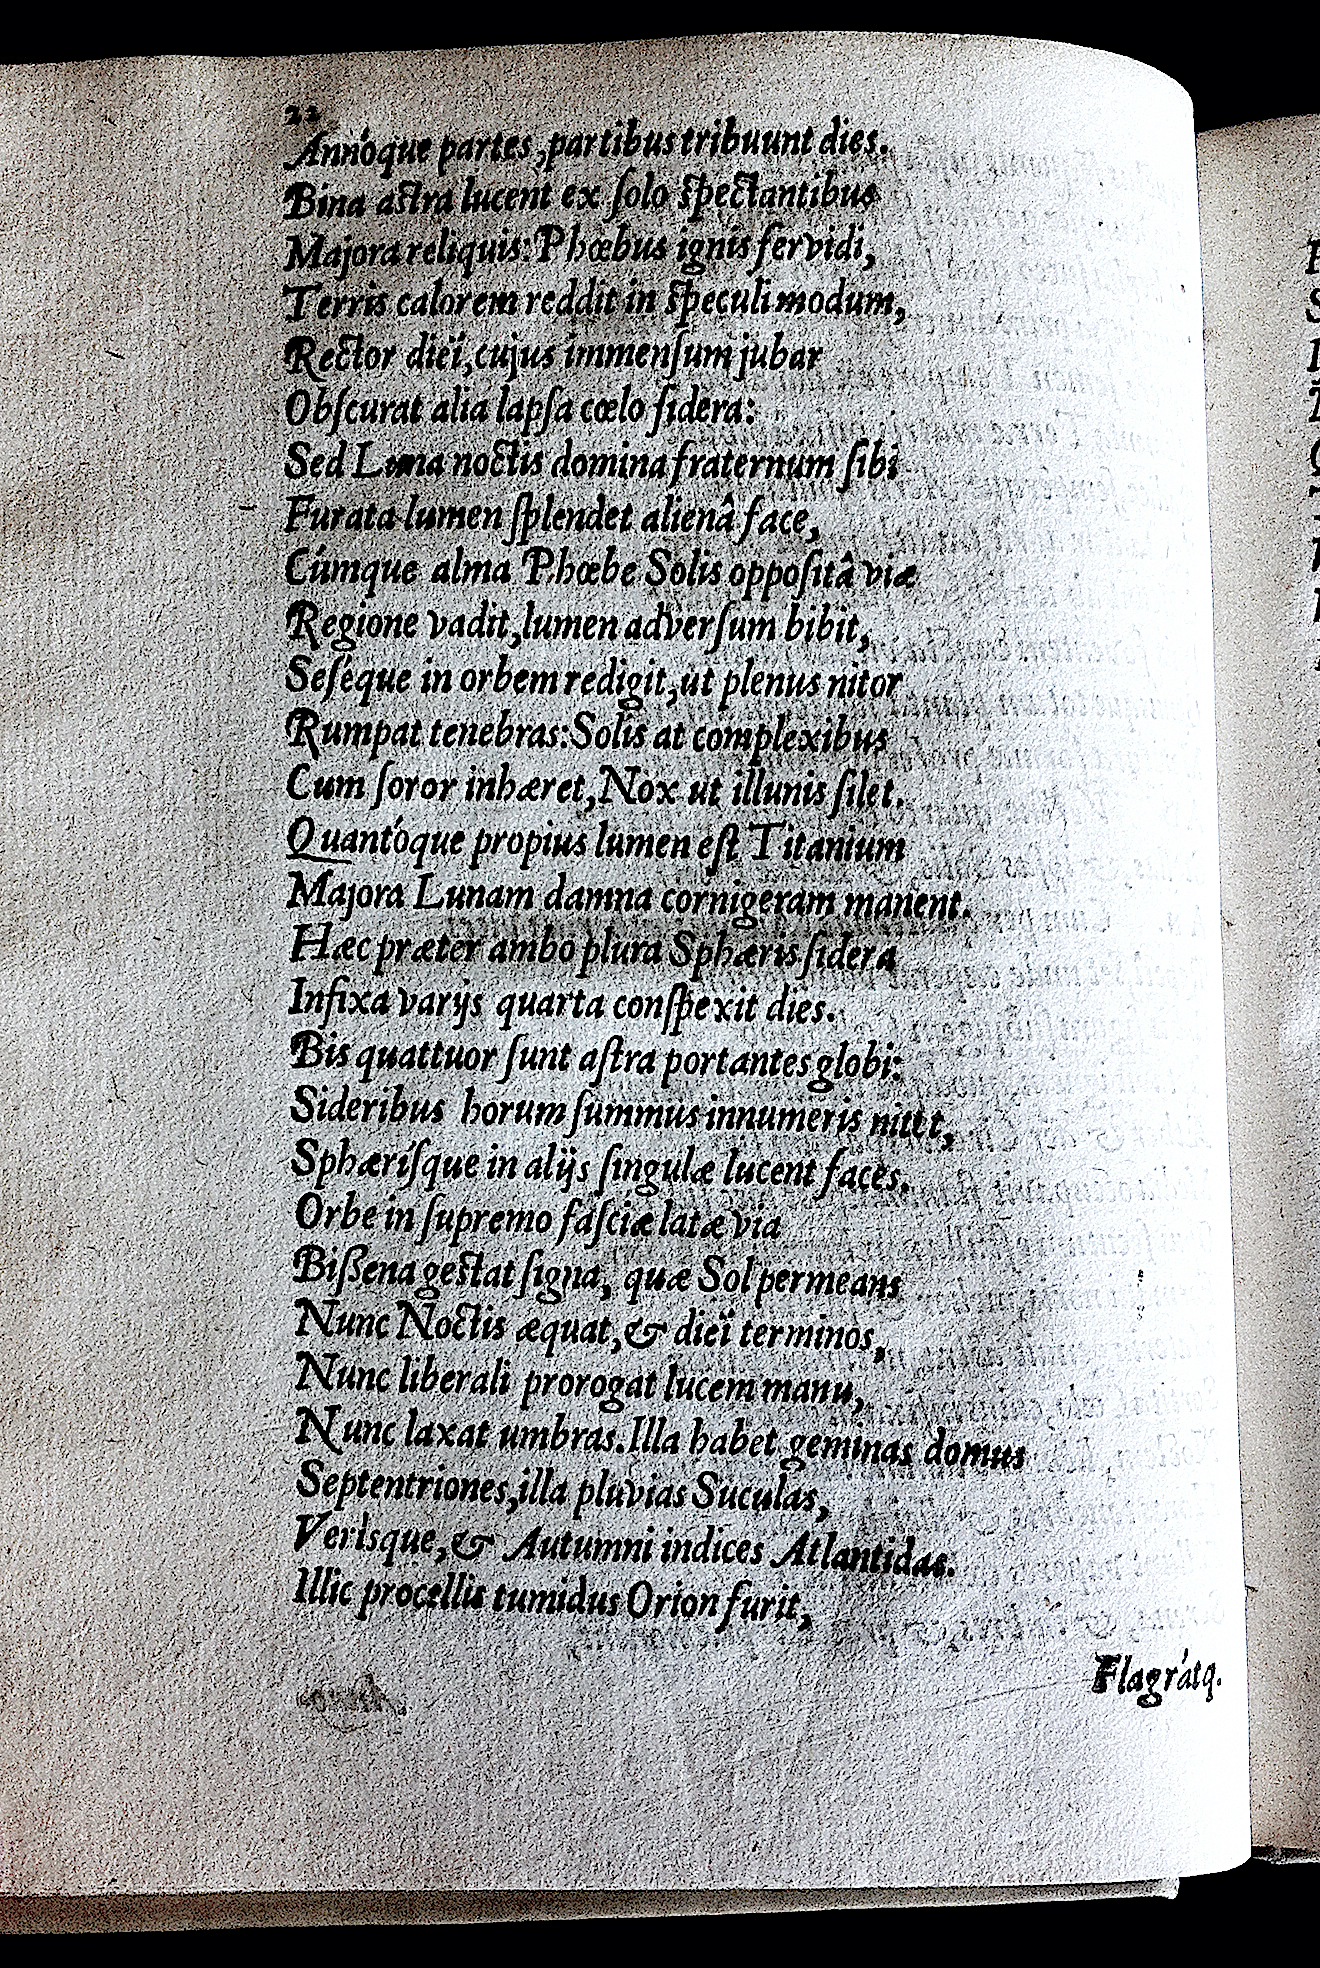 22
Annóque partes, partibus tribuunt dies.
Bina astra lucent ex ſolo ſpectantibus
Majora reliquis: Phœbus ignis fervidi,
Terris calorem reddit in ſpeculi modum,
Rector dieï, cujus immenſum jubar
Obſcurat alia lapſa cœlo ſidera:
Sed Luna noctis domina fraternum ſibi
Furata lumen ſplendet alienâ face,
Cúmque alma Phœbe Solis oppoſitâ viæ
Regione vadit, lumen adverſum bibit,
Seséque in orbem redigit, ut plenus nitor
Rumpat tenebras: Solis at complexibus
Cum ſoror inhæret, Nox ut illunis ſilet.
Quantóque propius lumen eſt Titanium
Majora Lunam damna cornigeram manent.
Hæc præter ambo plura Sphæris ſidera
Infixa varijs quarta conſpexit dies.
Bis quattuor ſunt aſtra portantes globi:
Sideribus horum ſummus innumeris nitet,
Sphæríſque in alijs ſingulæ lucent faces.
Orbe in ſupremo faſciæ latæ via
Biſſena geſtat ſigna, quæ Sol permeans
Nunc Noctis æquat, & dieï terminos,
Nunc liberali prorogat lucem manu,
Nunc laxat umbras. Illa habet geminas domus
Septentriones, illa pluvias Suculas,
Verisque, & Autumni indices Atlantidas.
Illic procellis tumidus Orion furit,
Flagrátq.